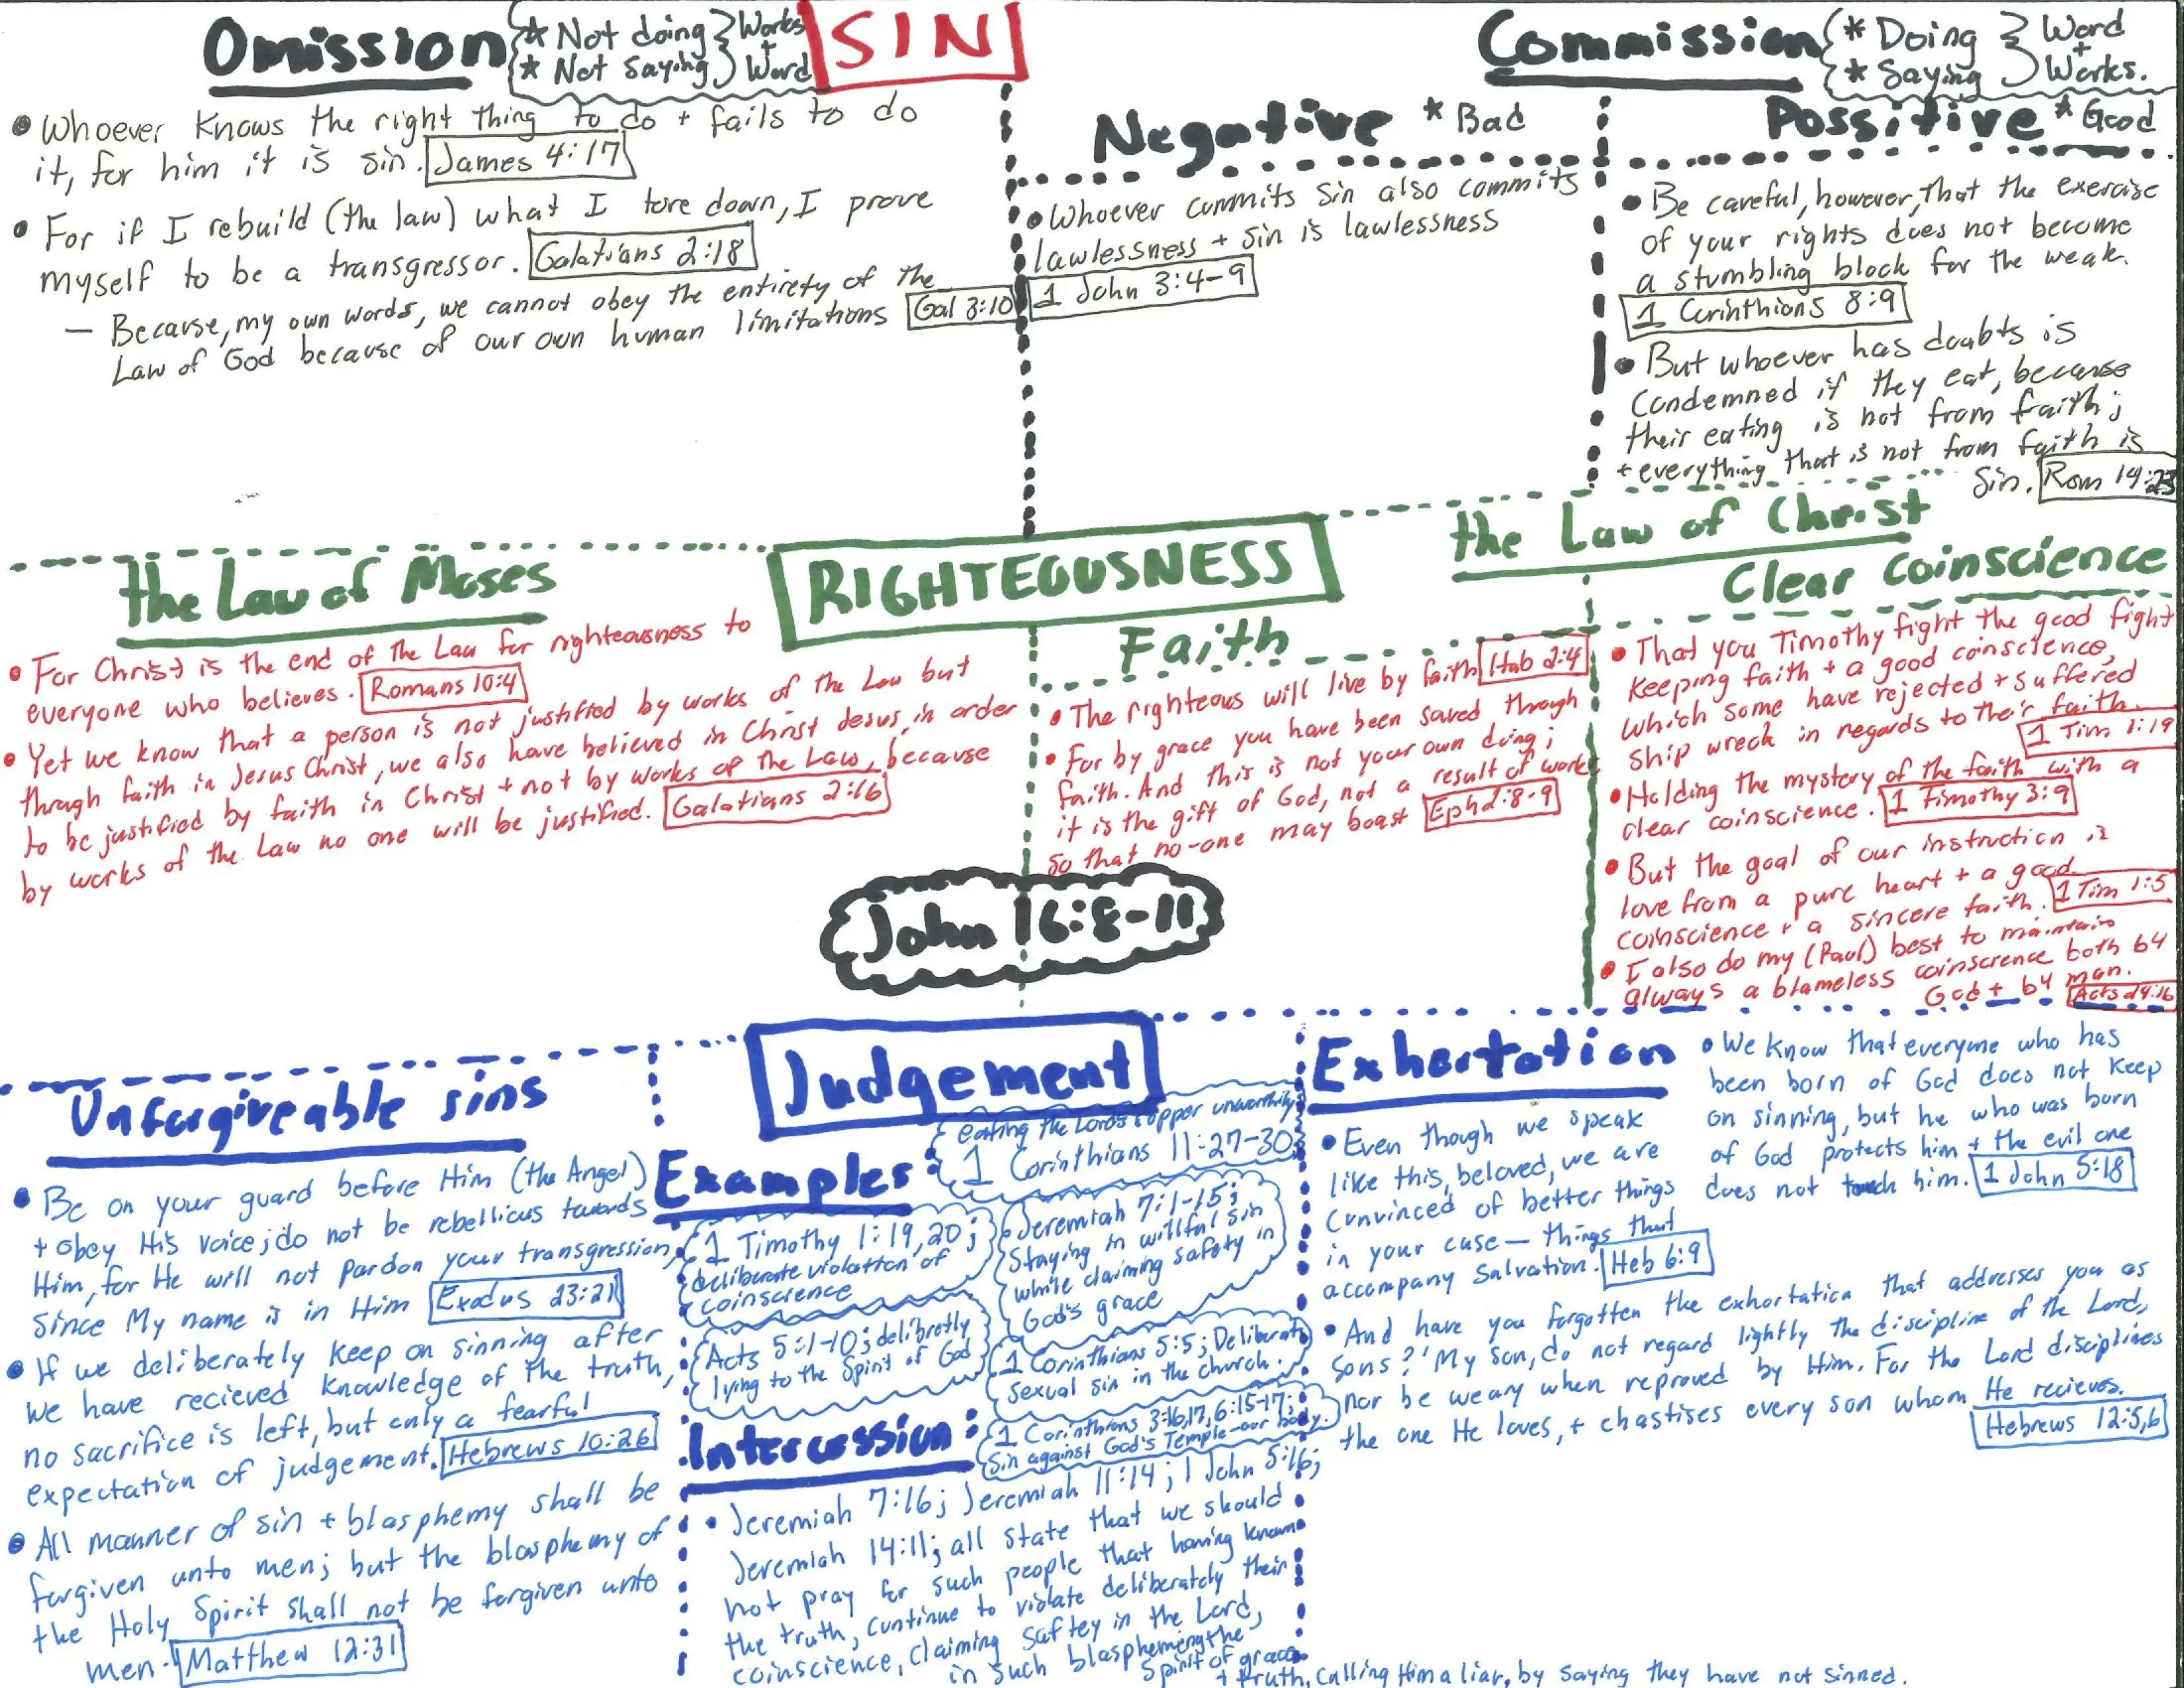 Omission
* Not doing } Works
+
* Not Saying } Word
SIN
Commission
* Doing } Word
+
* Saying } Works.
• Whoever knows the right thing to do + fails to do
it, for him it is sin. James 4:17
• For if I rebuild (the law) what I tore down, I prove
myself to be a transgressor. Galatians 2:18
— Because, my own words, we cannot obey the entirety of the
Law of God because of our own human limitations Gal 3:10
Negative * Bad
• Whoever commits sin also commits
lawlessness + sin is lawlessness
1 John 3:4-9
Possitive * Good
• Be careful, however, that the exercise
of your rights does not become
a stumbling block for the weak.
1 Corinthions 8:9
• But whoever has doubts is
condemned if they eat, because
their eating is not from faith;
+ everything that is not from faith is
sin. Rom 14:23
RIGHTEOUSNESS
the Law of Moses
• For Christ is the end of the Law for righteousness to
everyone who believes. Romans 10:4
• Yet we know that a person is not justified by works of the Law but
through faith in Jesus Christ, we also have believed in Christ Jesus, in order
to be justified by faith in Christ + not by works of the Law, because
by works of the Law no one will be justified. Galatians 2:16
the Law of Christ
Faith
• The righteous will live by faith Hab 2:4
• For by grace you have been saved through
faith. And this is not your own doing;
it is the gift of God, not a result of works
so that no-one may boast Eph 2:8-9
Clear Coinscience
• That you Timothy fight the good fight
keeping faith + a good conscience,
which some have rejected + suffered
ship wreck in regards to their faith.
1 Tim 1:19
• Holding the mystery of the faith with a
clear coinscience. 1 Timothy 3:9
• But the goal of our instruction is
love from a pure heart + a good
coinscience + a sincere faith. 1 Tim 1:5
• I also do my (Paul) best to maintain
always a blameless coinscience both b4
God + b4 man. Acts 24:16
John 16:8-11
Judgement
Unforgiveable sins
• Be on your guard before Him (the Angel)
+ obey His voice; do not be rebellious towards
Him, for He will not pardon your transgression,
since My name is in Him Exodus 23:21
• If we deliberately keep on sinning after
we have recieved knowledge of the truth,
no sacrifice is left, but only a fearful
expectation of judgement. Hebrews 10:26
• All manner of sin + blasphemy shall be
forgiven unto men; but the blasphemy of
the Holy Spirit shall not be forgiven unto
men. Matthew 12:31
Examples:
eating the Lord's supper unworthily
1 Corinthians 11:27-30
1 Timothy 1:19,20;
deliberate violation of
coinscience
Jeremiah 7:1-15;
Staying in willful sin
while claiming safety in
God's grace
Acts 5:1-10; delibretly
lying to the Spirit of God
1 Corinthians 5:5; Deliberate
sexual sin in the church.
1 Corinthians 3:16,17, 6:15-17;
Sin against God's Temple—our body.
Intercession:
• Jeremiah 7:16; Jeremiah 11:14; 1 John 5:16;
Jeremiah 14:11; all state that we should
not pray for such people that having known
the truth, continue to violate deliberately their
coinscience, claiming saftey in the Lord,
in such blaspheming the
Spirit of grace
+ truth, calling Him a liar, by saying they have not sinned.
Exhortation
• Even though we speak
like this, beloved, we are
convinced of better things
in your case — things that
accompany Salvation. Heb 6:9
• We know that everyone who has
been born of God does not keep
on sinning, but he who was born
of God protects him + the evil one
does not touch him. 1 John 5:18
• And have you forgotten the exhortation that addresses you as
sons? 'My son, do not regard lightly the discipline of the Lord,
nor be weary when reproved by Him. For the Lord disciplines
the one He loves, + chastises every son whom He recieves.
Hebrews 12:5,6